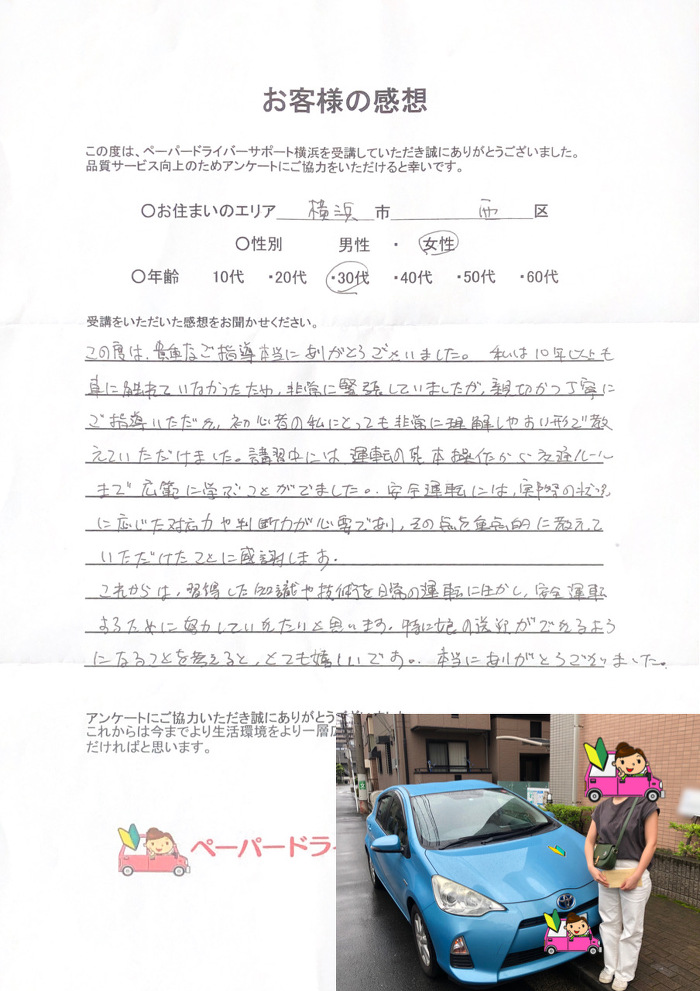 お客様の感想
この度は、ペーパードライバーサポート横浜を受講していただき誠にありがとうございました。
品質サービス向上のためアンケートにご協力をいただけると幸いです。
〇お住まいのエリア 横浜 市 西 区
〇性別 男性 ・ 女性
〇年齢 10代 ・20代 ・30代 ・40代 ・50代 ・60代
受講をいただいた感想をお聞かせください。
この度は、貴重なご指導本当にありがとうございました。私は10年以上も
車に触れていなかったため、非常に緊張していましたが、親切かつ丁寧に
ご指導いただき、初心者の私にとっても非常に理解しやすい形で教
えていただけました。講習中には、運転の基本操作から交通ルール
まで広範に学ぶことができました。安全運転には、実際の状況
に応じた対応力や判断力が必要であり、その点を重点的に教えて
いただけたことに感謝します。
これからは、習得した知識や技術を日常の運転に生かし、安全運転
するために努力していきたいと思います。特に娘の送迎ができるよう
になることを考えると、とても嬉しいです。本当にありがとうございました。
アンケートにご協力いただき誠にありがとう
これからは今までより生活環境をより一層広
だければと思います。
ペーパードライ